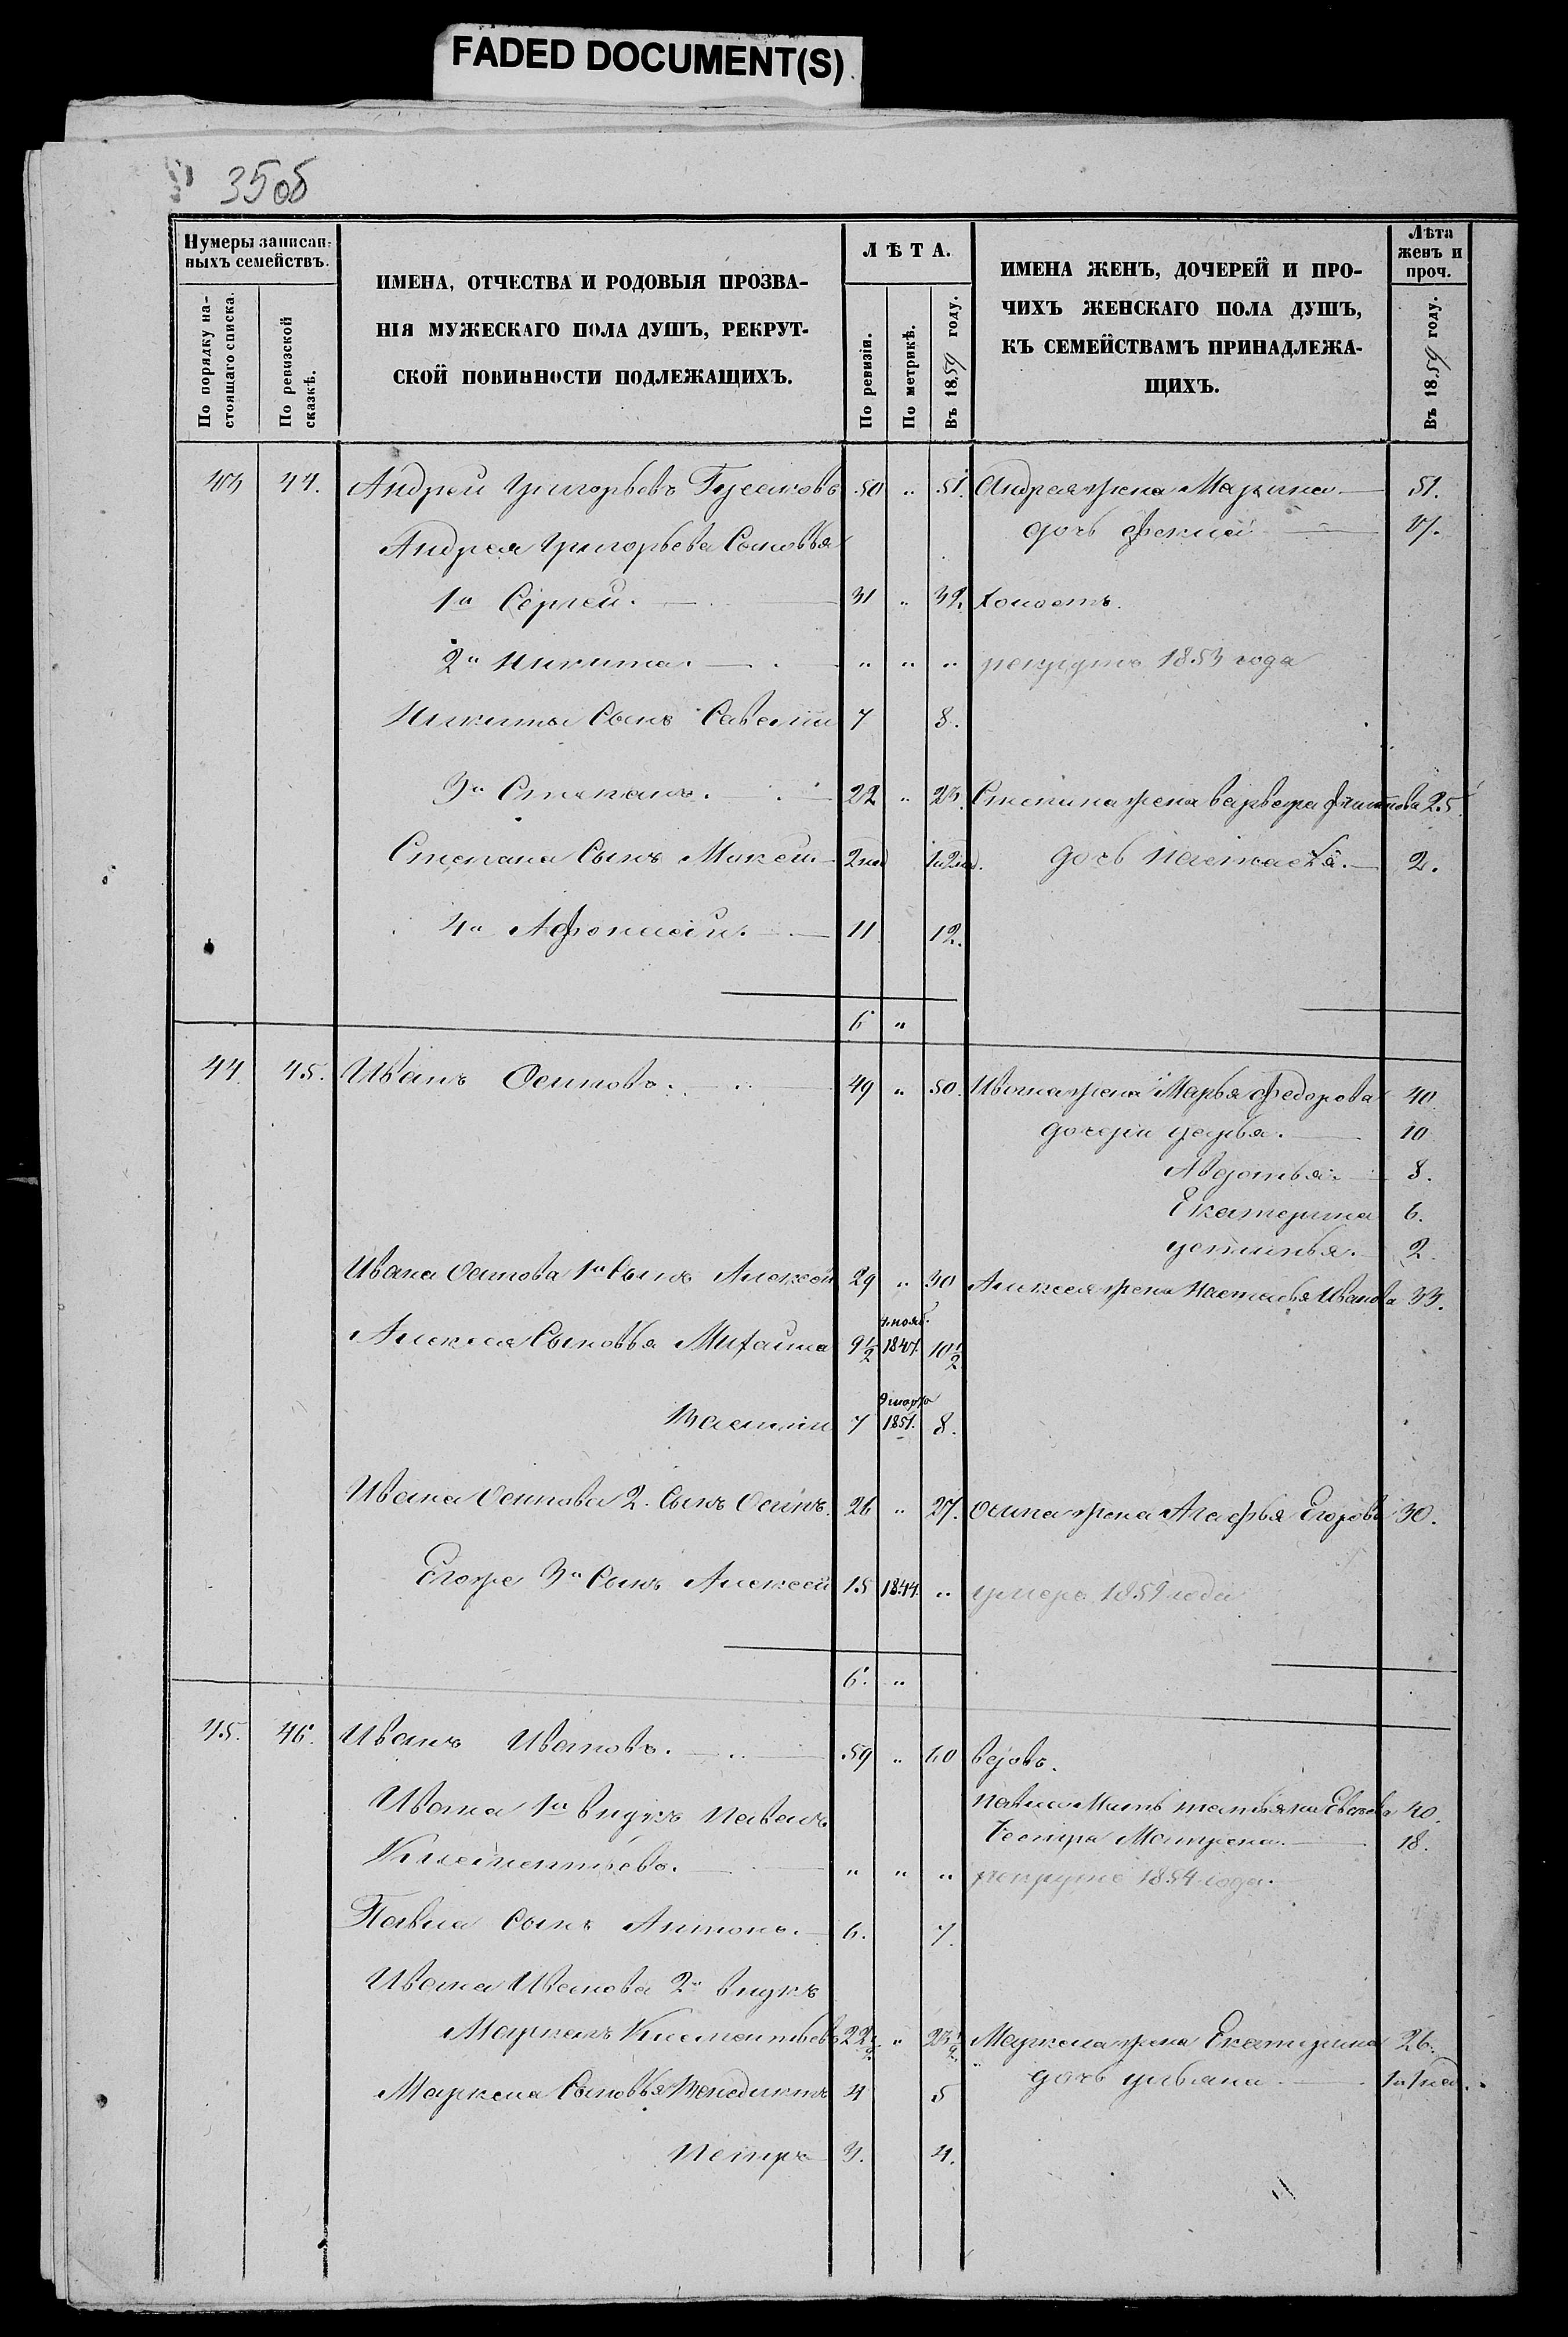 FADED DOCUMENT(S)
35 об
Нумеры записан-
ныхъ семействъ.
По порядку на-
стоящаго списка.
По ревизской
сказкѣ.
ИМЕНА, ОТЧЕСТВА И РОДОВЫЯ ПРОЗВА-
НІЯ МУЖЕСКАГО ПОЛА ДУШЪ, РЕКРУТ-
СКОЙ ПОВИННОСТИ ПОДЛЕЖАЩИХЪ.
ЛѢТА.
По ревизіи.
По метрикѣ.
Въ 1859 году.
ИМЕНА ЖЕНЪ, ДОЧЕРЕЙ И ПРО-
ЧИХЪ ЖЕНСКАГО ПОЛА ДУШЪ,
КЪ СЕМЕЙСТВАМЪ ПРИНАДЛЕЖА-
ЩИХЪ.
Лѣта
женъ и
проч.
Въ 1859 году.
43 44. Андрей Григорьевъ Гусаковъ 50 " 51. Андрея жена Марина 51.
дочь 17.
Андрея Григорьева Сыновья
1й Сергей. 31 " 32. холостъ.
2й Никита. " " " рекрутъ 1853 года
Никиты Сынъ Савелiй 7 8.
3й Степанъ. 22 " 23. Степана жена варвара филипова 25.
Степана Сынъ Мокей 2 нед 1 и 2 нед. дочь Настасья. 2.
4й Афонасiй. 11 12.
6 "
44. 45. Иванъ Осиповъ. 49 " 50. Ивана жена Марья федорова 40.
дочери дарья. 10
Авдотья. 8.
Екатерина 6.
устинья. 2.
Ивана Осипова 1й Сынъ Алексей 29 " 30 Алексея жена Настасья Иванова 33.
Алексея Сыновья Михайла 9½ нояб. 1847 10½
Василiй 7 9 марта 1851. 8.
Ивана Осипова 2. Сынъ Осипъ. 26 " 27. Осипа жена Агафья Егорова 30.
Егоже 3й Сынъ Алексей 15 1844. " умеръ 1859 года
6. "
45. 46. Иванъ Ивановъ. 59 " 60 вдовъ.
Ивана 1й внукъ Павелъ Павла Мать татьяна 40.
Сестра Матрена. 18.
Климентьевъ. " " " рекрутъ 1854 года.
Павла Сынъ Антонъ. 6. 7.
Ивана Иванова 2й внукъ
Маркелъ Климентьевъ 22½ " 23½ Маркела жена Екатерина 26.
Маркела Сыновья Венедиктъ 4 5 дочь ульяна. 1 и 1 нед.
Петръ 3. 4.